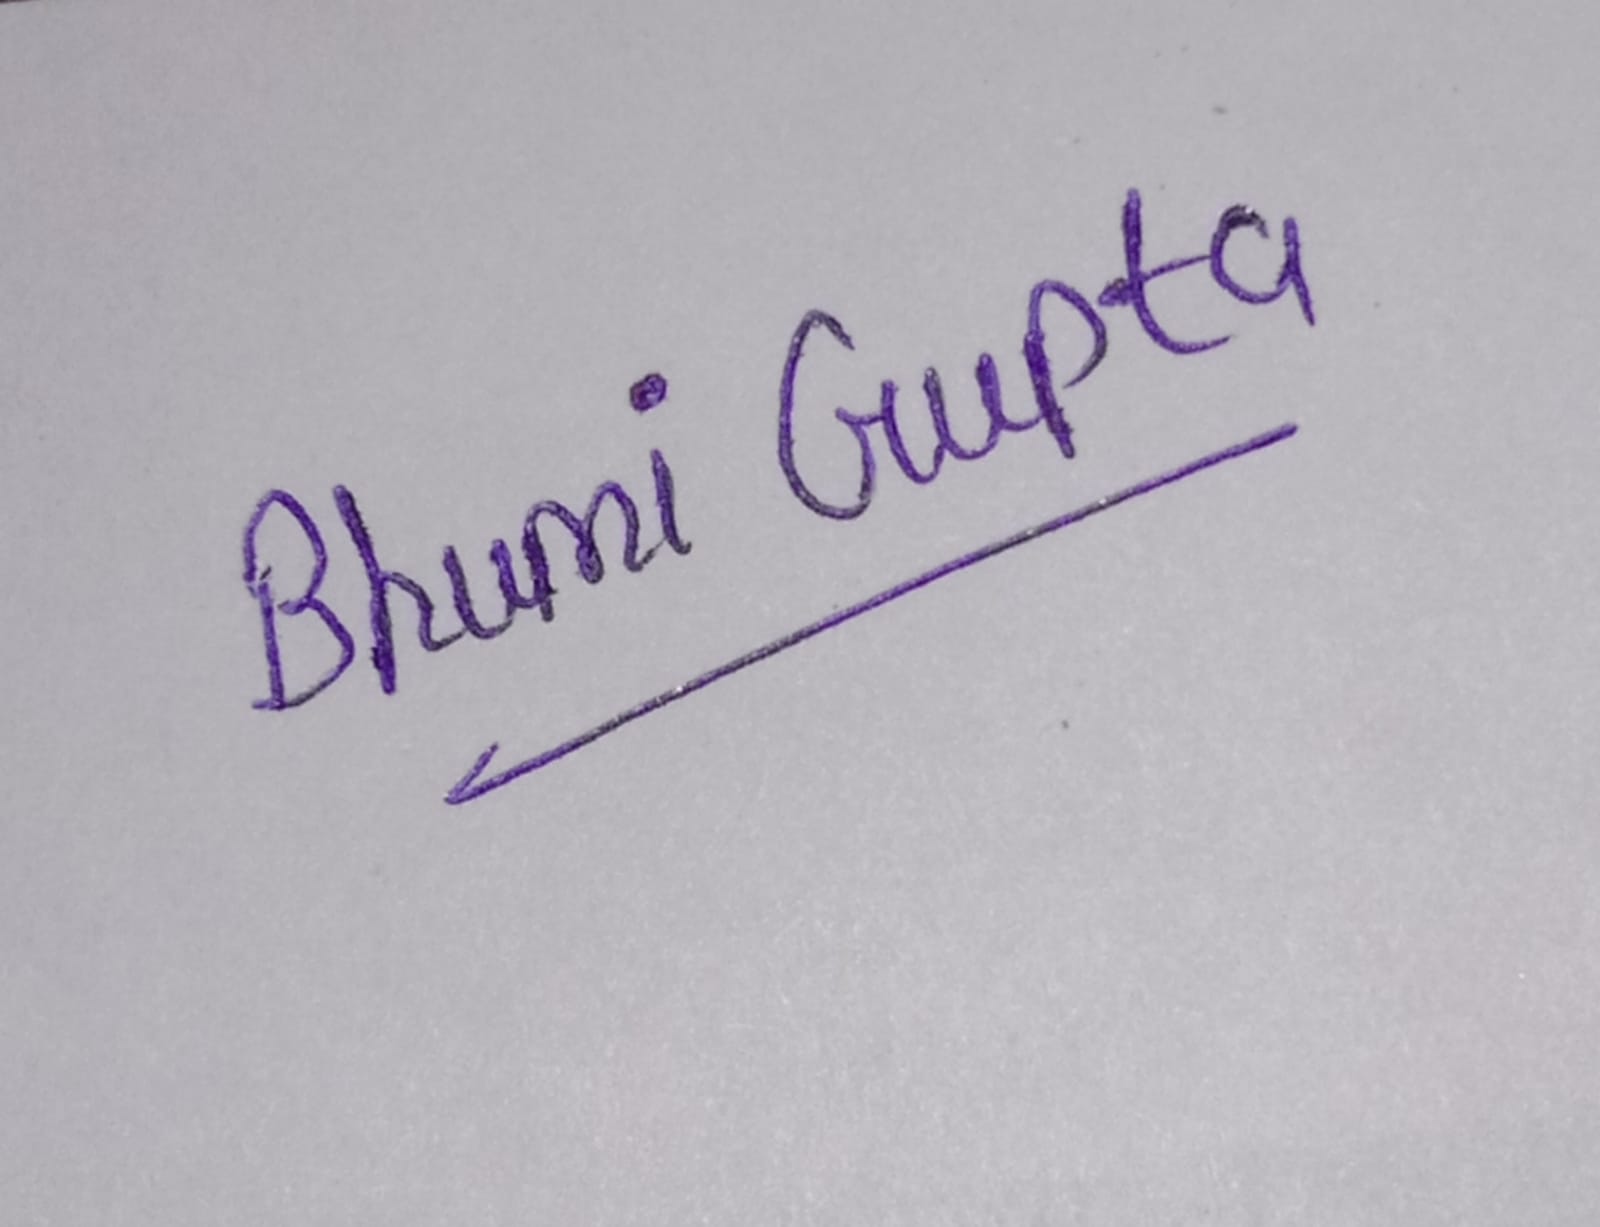 Bhumi Gupta